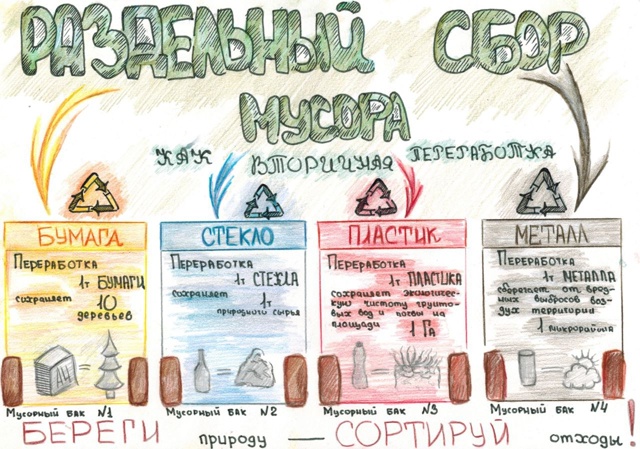 РАЗДЕЛЬНЫЙ СБОР
МУСОРА
КАК ВТОРИЧНАЯ ПЕРЕРАБОТКА
БУМАГА
ПЕРЕРАБОТКА
1т БУМАГИ
сохраняет 10
деревьев
А4
Мусорный бак №1
СТЕКЛО
ПЕРЕРАБОТКА
1т СТЕКЛА
сохраняет
1т
природного сырья
Мусорный бак №2
ПЛАСТИК
ПЕРЕРАБОТКА
1т ПЛАСТИКА
сохраняет экологичес-
кую чистоту грунто-
вых вод и почвы на
площади
1 Га
Мусорный бак №3
МЕТАЛЛ
ПЕРЕРАБОТКА
1т МЕТАЛЛА
сберегает от вред-
ных выбросов воз-
дух территории
1 микрорайона
Мусорный бак №4
БЕРЕГИ природу — СОРТИРУЙ отходы!